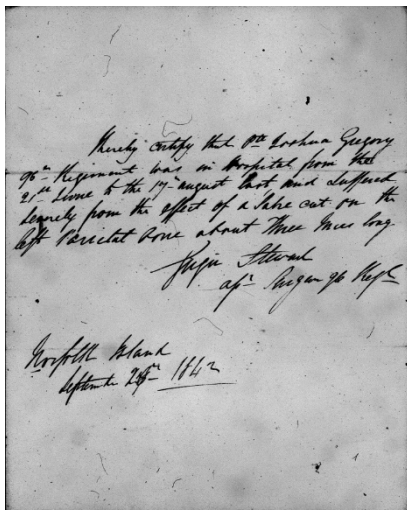 I hereby certify that Pte Joshua Gregory
96th Regiment was in Hospital from the
21st June to the 17th august last and Suffered
Severely from the effect of a Sabre cut on the
left Parietal bone about Three Inces long
Stewart
asst Surgeon 96 Regt
Norfolk Island
September 1842